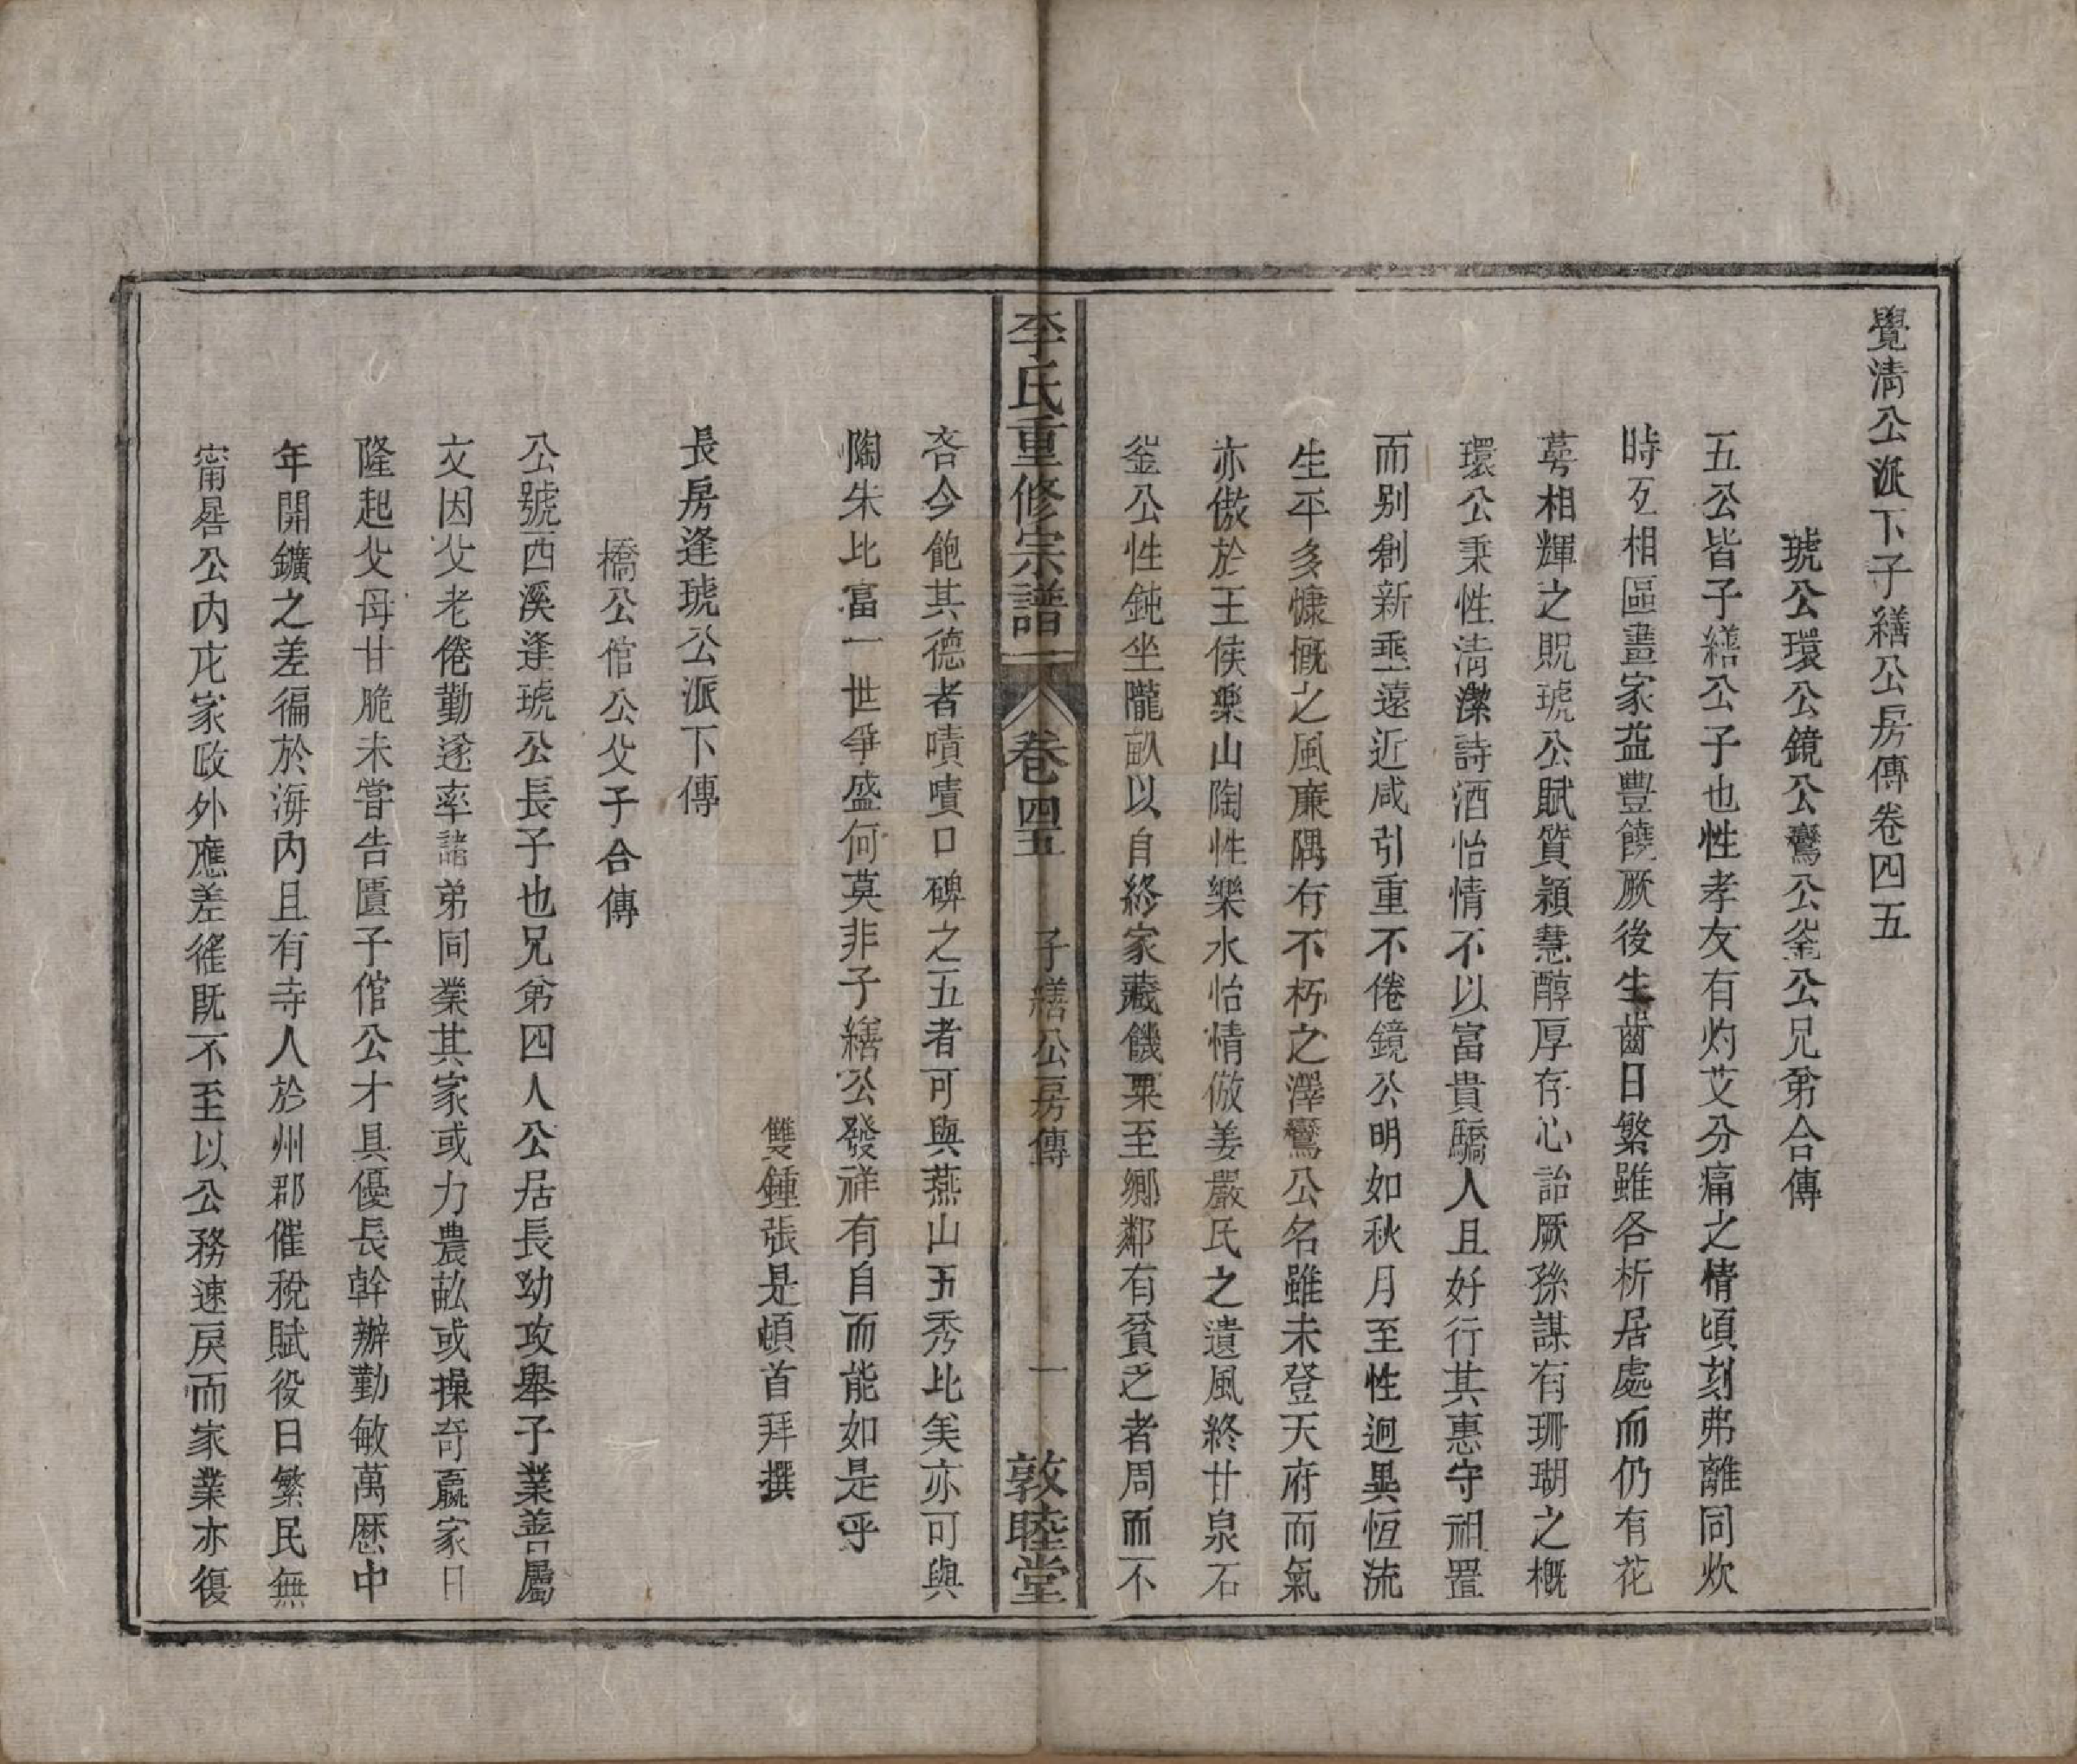 覺清公派下子繕公房傳卷四五
琥公環公鏡公鸞公崟公兄弟合傳
五公皆子繕公子也性孝友有灼艾分痛之情頃刻弗離同炊
時互相區畫家益豐饒厥後生齒日繁雖各析居處而仍有花
萼相輝之貺琥公賦質穎慧醇厚存心詒厥孫謀有珊瑚之概
環公秉性清潔詩酒怡情不以富貴驕人且好行其惠守祖置
而别創新垂遠近咸引重不倦鏡公明如秋月至性迥異恒流
生平多慷慨之風廉隅有不朽之澤鸞公名雖未登天府而氣
亦傲於王侯樂山陶性樂水怡情倣姜嚴氏之遺風終甘泉石
崟公性鈍坐隴畝以自終家藏饑粟至鄉鄰有貧乏者周而不
李氏重修宗譜 卷四五 子繕公房傳 一 敦睦堂
吝今飽其德者嘖嘖口碑之五者可與燕山五秀比美亦可與
陶朱比富一世爭盛何莫非子繕公發祥有自而能如是乎
雙鍾張是頓首拜撰
長房逢琥公派下傳
橋公倌公父子合傳
公號西溪逢琥公長子也兄弟四人公居長幼攻舉子業善屬
文因父老倦勤遂率諸弟同業其家或力農畝或操奇贏家日
隆起父母甘脆未嘗告匱子倌公才具優長幹辦勤敏萬歷中
年開鑛之差徧於海內且有寺人於州郡催稅賦役日繁民無
甯晷公內庀家政外應差徭既不至以公務速戾而家業亦復